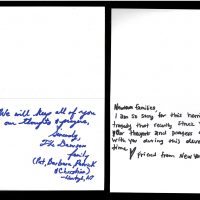 We will keep all of you
in our thoughts & prayers.
Sincerely,
The
family
(Pat, Barbara, Patrick
& Christine)
Newtown families,
I am so sorry for this horrible
tragedy that recently struck
thoughts and prayers are
with you during this
time.
friend from New York